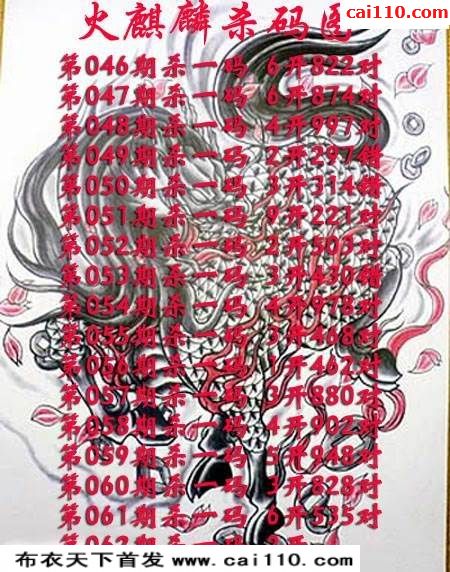 cai110.com
火麒麟杀码图
第046期杀一码 6开822对
第047期杀一码 6开874对
第048期杀一码 4开997对
第049期杀一码 2开297错
第050期杀一码 3开314错
第051期杀一码 9开221对
第052期杀一码 2开503对
第053期杀一码 3开430错
第054期杀一码 4开978对
第055期杀一码 3开468对
第056期杀一码 1开462对
第057期杀一码 3开880对
第058期杀一码 4开902对
第059期杀一码 5开948对
第060期杀一码 3开828对
第061期杀一码 6开535对
第062期杀一码
布衣天下首发 www.cai110.com